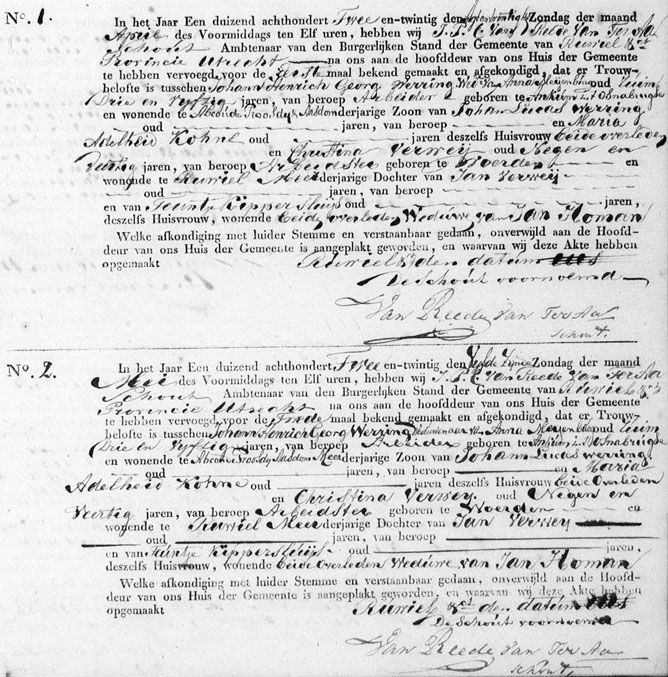 No. 1. In het Jaar Een duizend achthonderd Twee en-twintig den Zondag der maand
April des Voormiddags ten Elf uren, hebben wij J. P. C. Van Reede Van Ter Aa
Schout Ambtenaar van den Burgerlijken Stand der Gemeente van Ruwiel &ct
Provincie Utrecht na ons aan de hoofddeur van ons Huis der Gemeente
te hebben vervoegd, voor de Eerste maal bekend gemaakt en afgekondigd, dat er Trouw-
belofte is tusschen Johann Henrich Georg Werring Wed. Van Anna oud ruim
Drie en Vyftig jaren, van beroep Arbeider geboren te Ankum
en wonende te Abcoude Meerderjarige Zoon van Johan Lucas Werring
oud jaren, van beroep en Maria
Adelheid Kohne oud jaren deszelfs Huisvrouw beide overleden
en Christina Verweij oud Negen en
Veertig jaren, van beroep Arbeidster geboren te Woerden en
wonende te Ruwiel Meerderjarige Dochter van Jan Verweij
oud jaren, van beroep
en van Kuntje Kippersluijs oud jaren,
deszelfs Huisvrouw, wonende beide overleden Weduwe van Jan Homan
Welke afkondiging met luider Stemme en verstaanbaar gedaan, onverwijld aan de Hoofd-
deur van ons Huis der Gemeente is aangeplakt geworden, en waarvan wij deze Akte hebben
opgemaakt Ruwiel &ct den datum
De Schout voornoemd
Van Reede Van Ter Aa
Schout.
No. 2. In het Jaar Een duizend achthonderd Twee en-twintig den Zondag der maand
Mei des Voormiddags ten Elf uren, hebben wij J. P. C. Van Reede Van Ter Aa
Schout Ambtenaar van den Burgerlijken Stand der Gemeente van Ruwiel &ct
Provincie Utrecht na ons aan de hoofddeur van ons Huis der Gemeente
te hebben vervoegd, voor de Twede maal bekend gemaakt en afgekondigd, dat er Trouw-
belofte is tusschen Johann Henrich Georg Werring Weduwenaar van Anna oud ruim
Drie en Vyftig jaren, van beroep Arbeider geboren te Ankum
en wonende te Abcoude Meerderjarige Zoon van Johann Lucas Werring
oud jaren, van beroep en Maria
Adelheid Kohne oud jaren deszelfs Huisvrouw beide Overleden
en Christina Verweij oud Negen en
Veertig jaren, van beroep Arbeidster geboren te Woerden en
wonende te Ruwiel Meerderjarige Dochter van Jan Verweij
oud jaren, van beroep
en van Kuntje Kippersluijs oud jaren,
deszelfs Huisvrouw, wonende beide Overleden Weduwe van Jan Homan
Welke afkondiging met luider Stemme en verstaanbaar gedaan, onverwijld aan de Hoofd-
deur van ons Huis der Gemeente is aangeplakt geworden, en waarvan wij deze Akte hebben
opgemaakt Ruwiel &ct den datum
De Schout voornoemd
Van Reede Van Ter Aa
Schout.